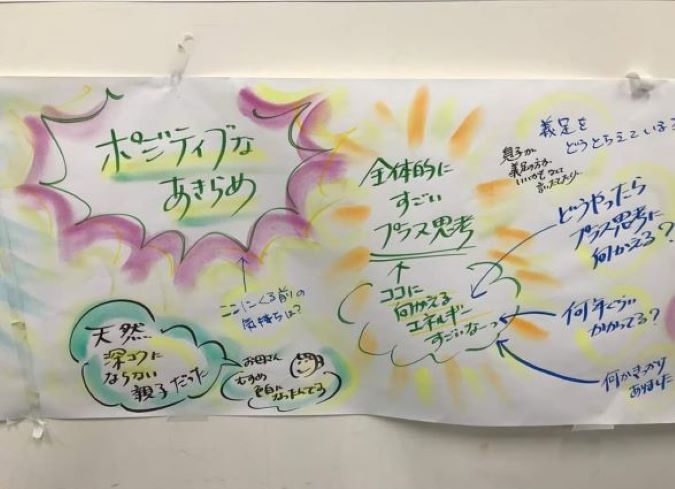 ポジティブな
あきらめ
ここにくる前の
気持ちは?
天然
深コクに
ならない
親子だった
お母さん
むすめ
になったんでる
全体的に
すごい
プラス思考
ココに
向かえる
エネルギー
すごいなーっ
義足を
どうとらえている
息子が
義足の方が
どうやったら
プラス思考に
向かえる?
何年くらい
かかってる?
何かきっかけ
ありました